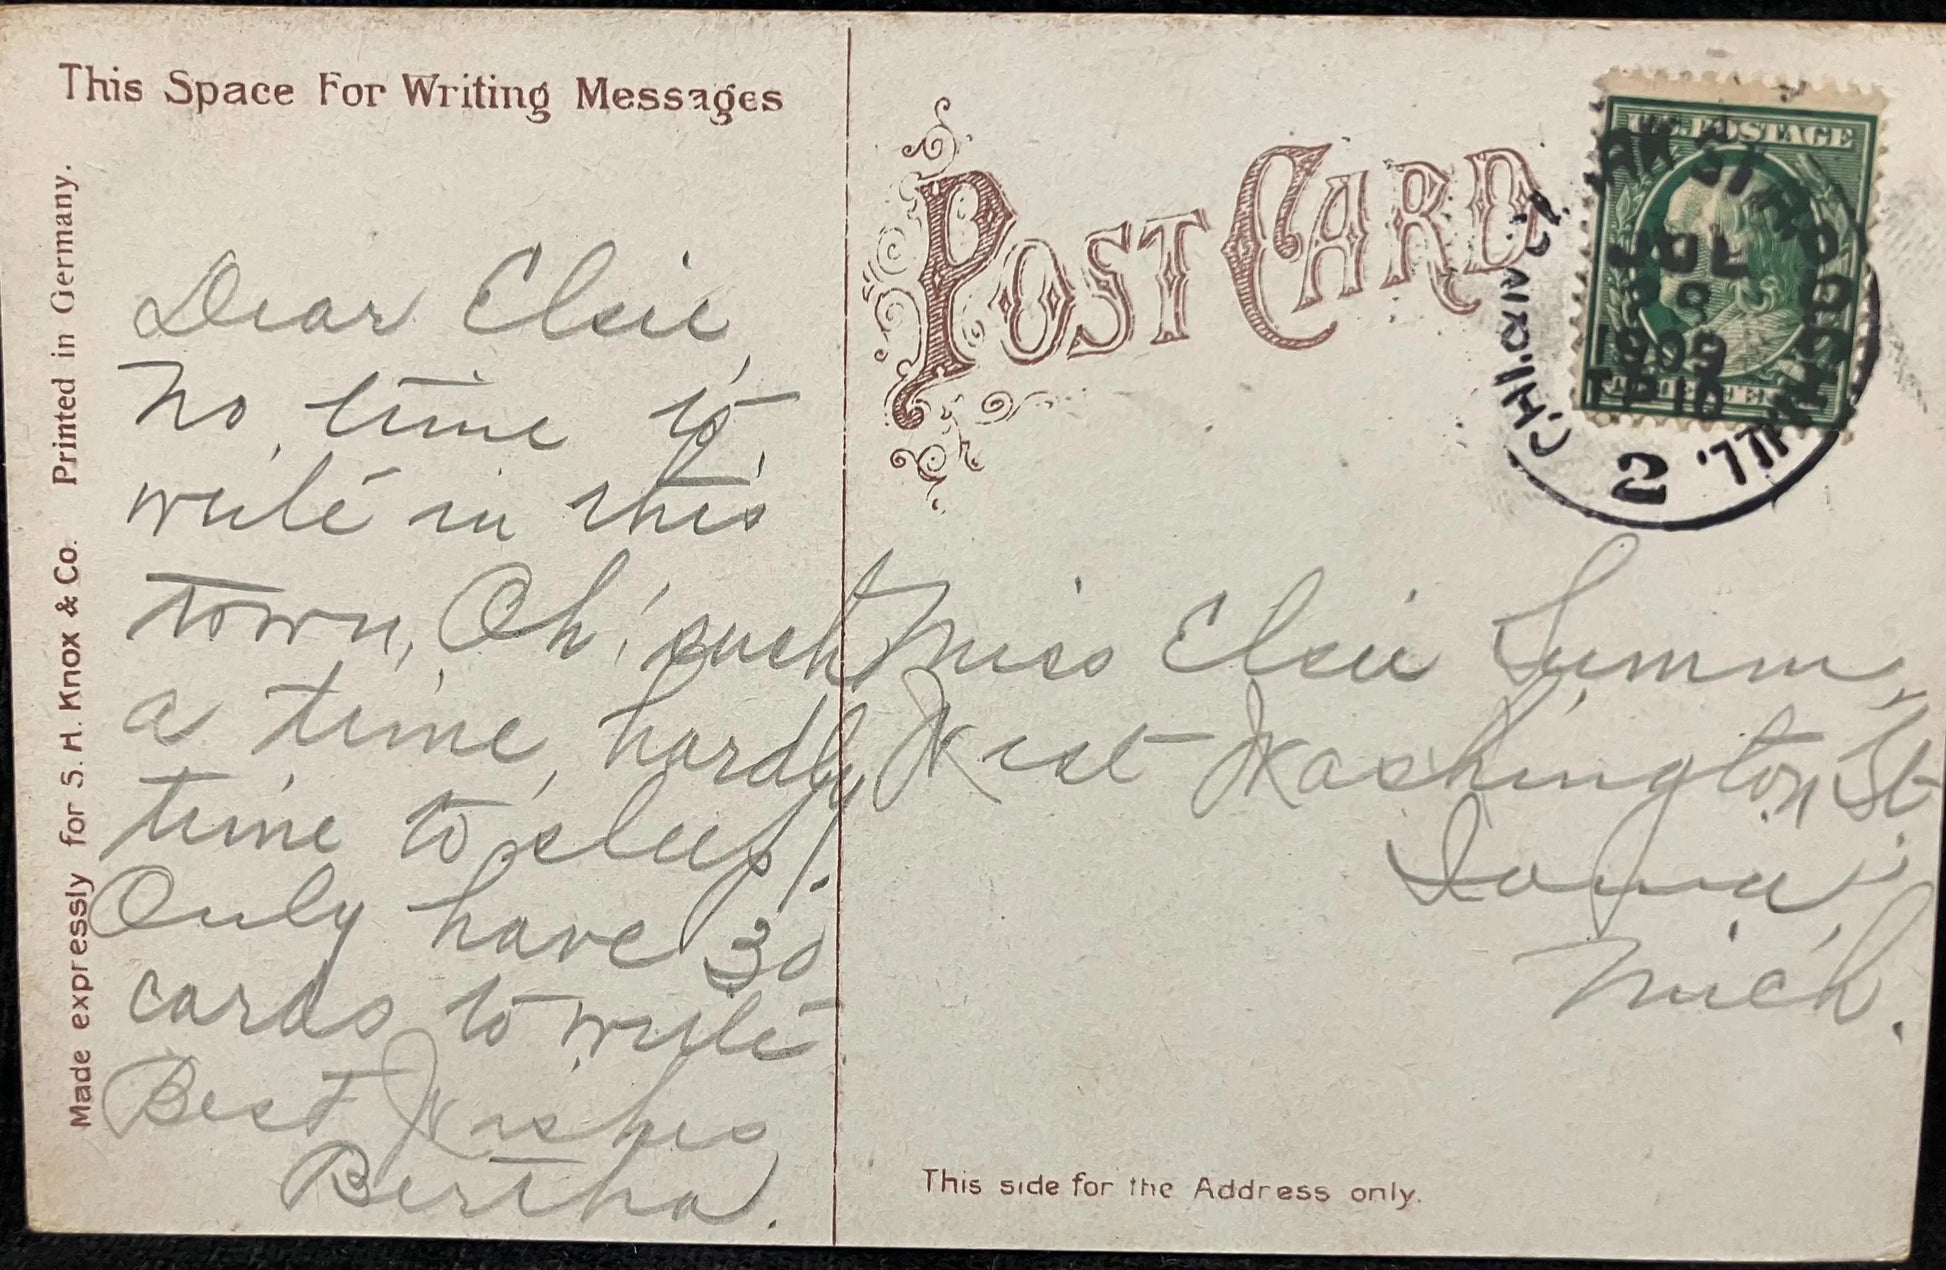 This Space For Writing Messages
Made expressly for S. H. Knox & Co. Printed in Germany.
Dear Elsie,
No time to
write in this
town, Oh! such
a time, hardly
time to sleep!
Only have 30
cards to write
Best Wishes
Bertha.
POST CARD
U.S. POSTAGE
JUL
1909
2
Miss Elsie Summ,
West Washington St.
Ionia,
Mich.
This side for the Address only.